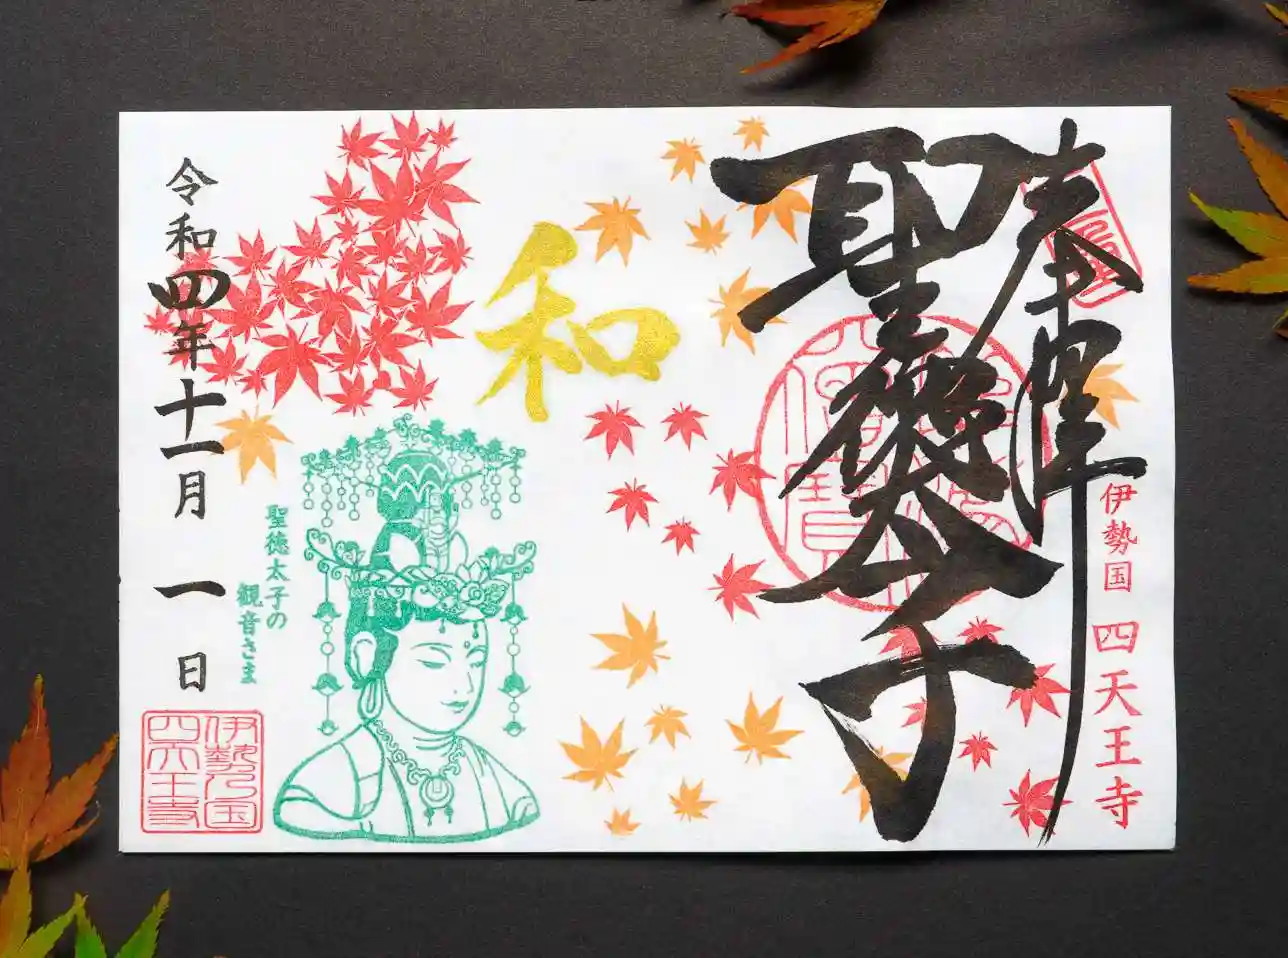 奉拝
伊勢国 四天王寺
聖徳太子
和
聖徳太子の
観音さま
令和四年十一月一日
伊勢乃国
四天王寺